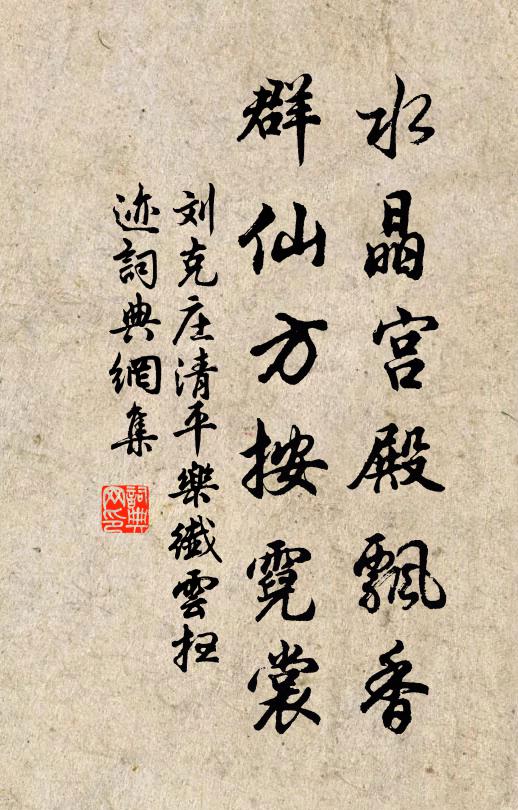 水晶宫殿飘香
群仙方按霓裳
刘克庄清平樂纖雲扫
迹詞典網集
詞典
网印